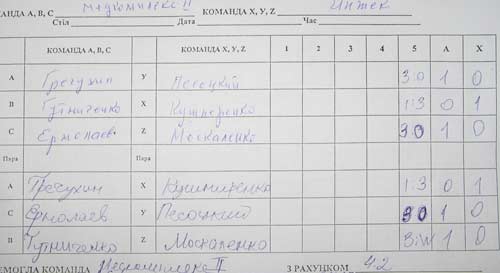 КОМАНДА А, В, С Медкомплекс II КОМАНДА X, У, Z Интек
Стіл Дата Час
КОМАНДА А, В, С КОМАНДА X, У, Z 1 2 3 4 5 А X
А Гречухин У Песоцкий 3:0 1 0
В Гутниченко X Кушниренко 1:3 0 1
С Ермолаев Z Москаленко 3:0 1 0
Пара Пара
А Гречухин X Кушниренко 1:3 0 1
С Ермолаев У Песоцкий 3:0 1 0
В Гутниченко Z Москаленко 3: 1 0
ПЕРЕМОГЛА КОМАНДА Медкомплекс II З РАХУНКОМ 4:2